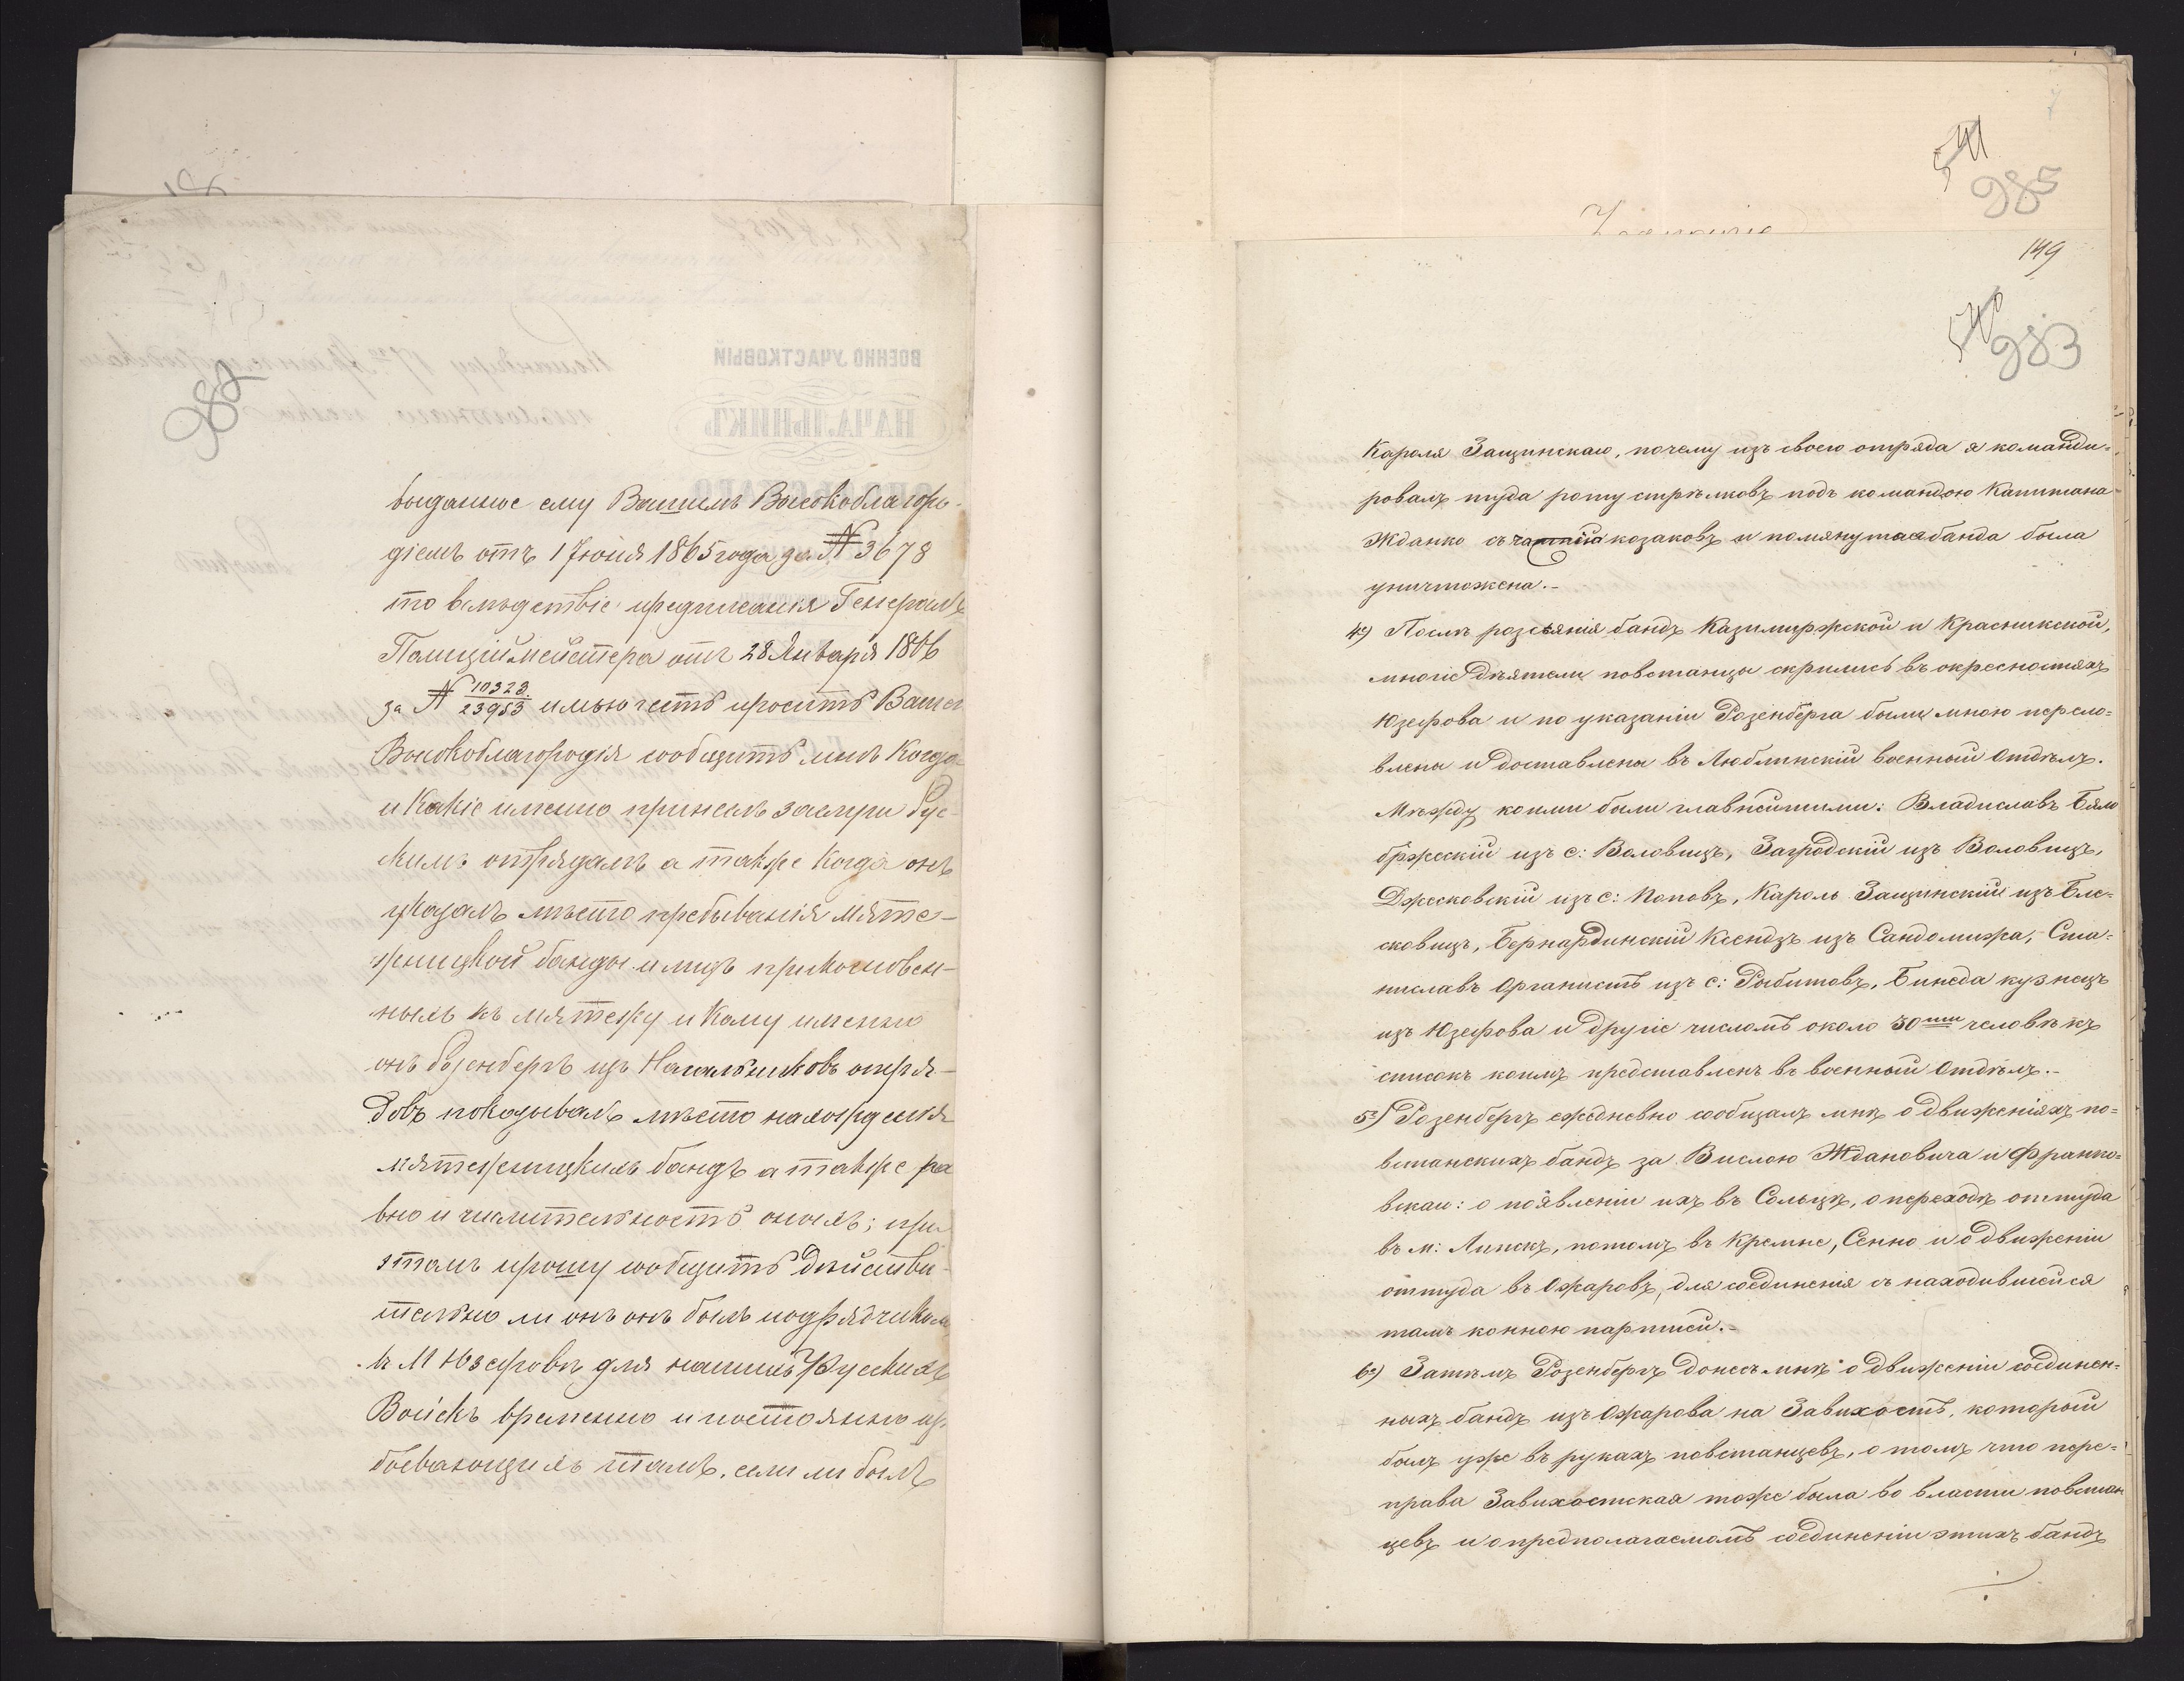 982
выданное ему Вашимъ Высокоблагоро-
діемъ отъ 1 Іюня 1865 года за № 3678
то вслѣдствіе предписанія Генералъ
Полиціймейстера отъ 28 Января 1866
за № 10328/23953 имѣю честь просить Вашего
Высокоблагородія сообщить мнѣ когда
и какіе именно принесъ заслуги Рус-
кимъ отрядамъ а также когда онъ
указалъ мѣсто пребыванія мяте-
жницкой банды и лицъ прикосновен-
ныхъ къ мятежу и кому именно
онъ Розенбергъ изъ Начальниковъ отря-
довъ показывалъ мѣсто нахожденія
мятежницкихъ бандъ а также ра
вно и числительность оныхъ; при
этомъ прошу сообщить дѣйстви-
тельно ли онъ онъ былъ подрядчикомъ
въ М Юзефовѣ для нашихъ Русскихъ
Войскъ временно и постоянно пре
бывающихъ тамъ, если ли былъ
985
149
983
Кароля Защинскаго, почему изъ своего отряда я команди-
ровалъ туда роту стрѣлковъ подъ командою Капитана
Жданко съ частію козаковъ и помянутая банда была
уничтожена.-
4е) Послѣ розсѣянія бандъ Казимиржской и Красникской,
многіе дѣятели повстанцы скрились въ окресностяхъ
Юзефова и по указаніи Розенберга были мною перело-
влены и доставлены въ Люблинскій военный Отдѣлъ.
Между коими были главнейшими: Владиславъ Бяло
бржескій изъ с: Воловицъ, Загродскій изъ Воловицъ,
Држесковскій изъ с: Поповъ, Кароль Защинскій изъ Бле-
сковицъ, Бернардинскій Ксендзъ изъ Сандомиржа, Ста-
ниславъ Органистъ изъ с: Рыбитовъ, Бинѣда кузнецъ
изъ Юзефова и другіе числомъ около 30ти человѣкъ
списокъ коимъ представленъ въ военный Отдѣлъ.-
5е) Розенбергъ ежедневно сообщалъ мнѣ о движеніяхъ по-
встанскихъ бандъ за Вислою Ждановича и Франко-
вскаи: о появленіи ихъ въ Сольцѣ, о переходѣ оттуда
въ м: Липскъ, потомъ въ Кремпе, Сенно и о движеніи
оттуда въ Ожаровъ, для соединенія съ находившейся
тамъ конною партіей.-
6е) Затѣмъ Розенбергъ донесъ мнѣ о движеніи соединен-
ныхъ бандъ изъ Ожарова на Завихостъ, который
былъ уже въ рукахъ повстанцевъ, о томъ что пере-
права Завихостская тоже была во власти повстан
цевъ и о предполагаемомъ соединеніи этихъ бандъ